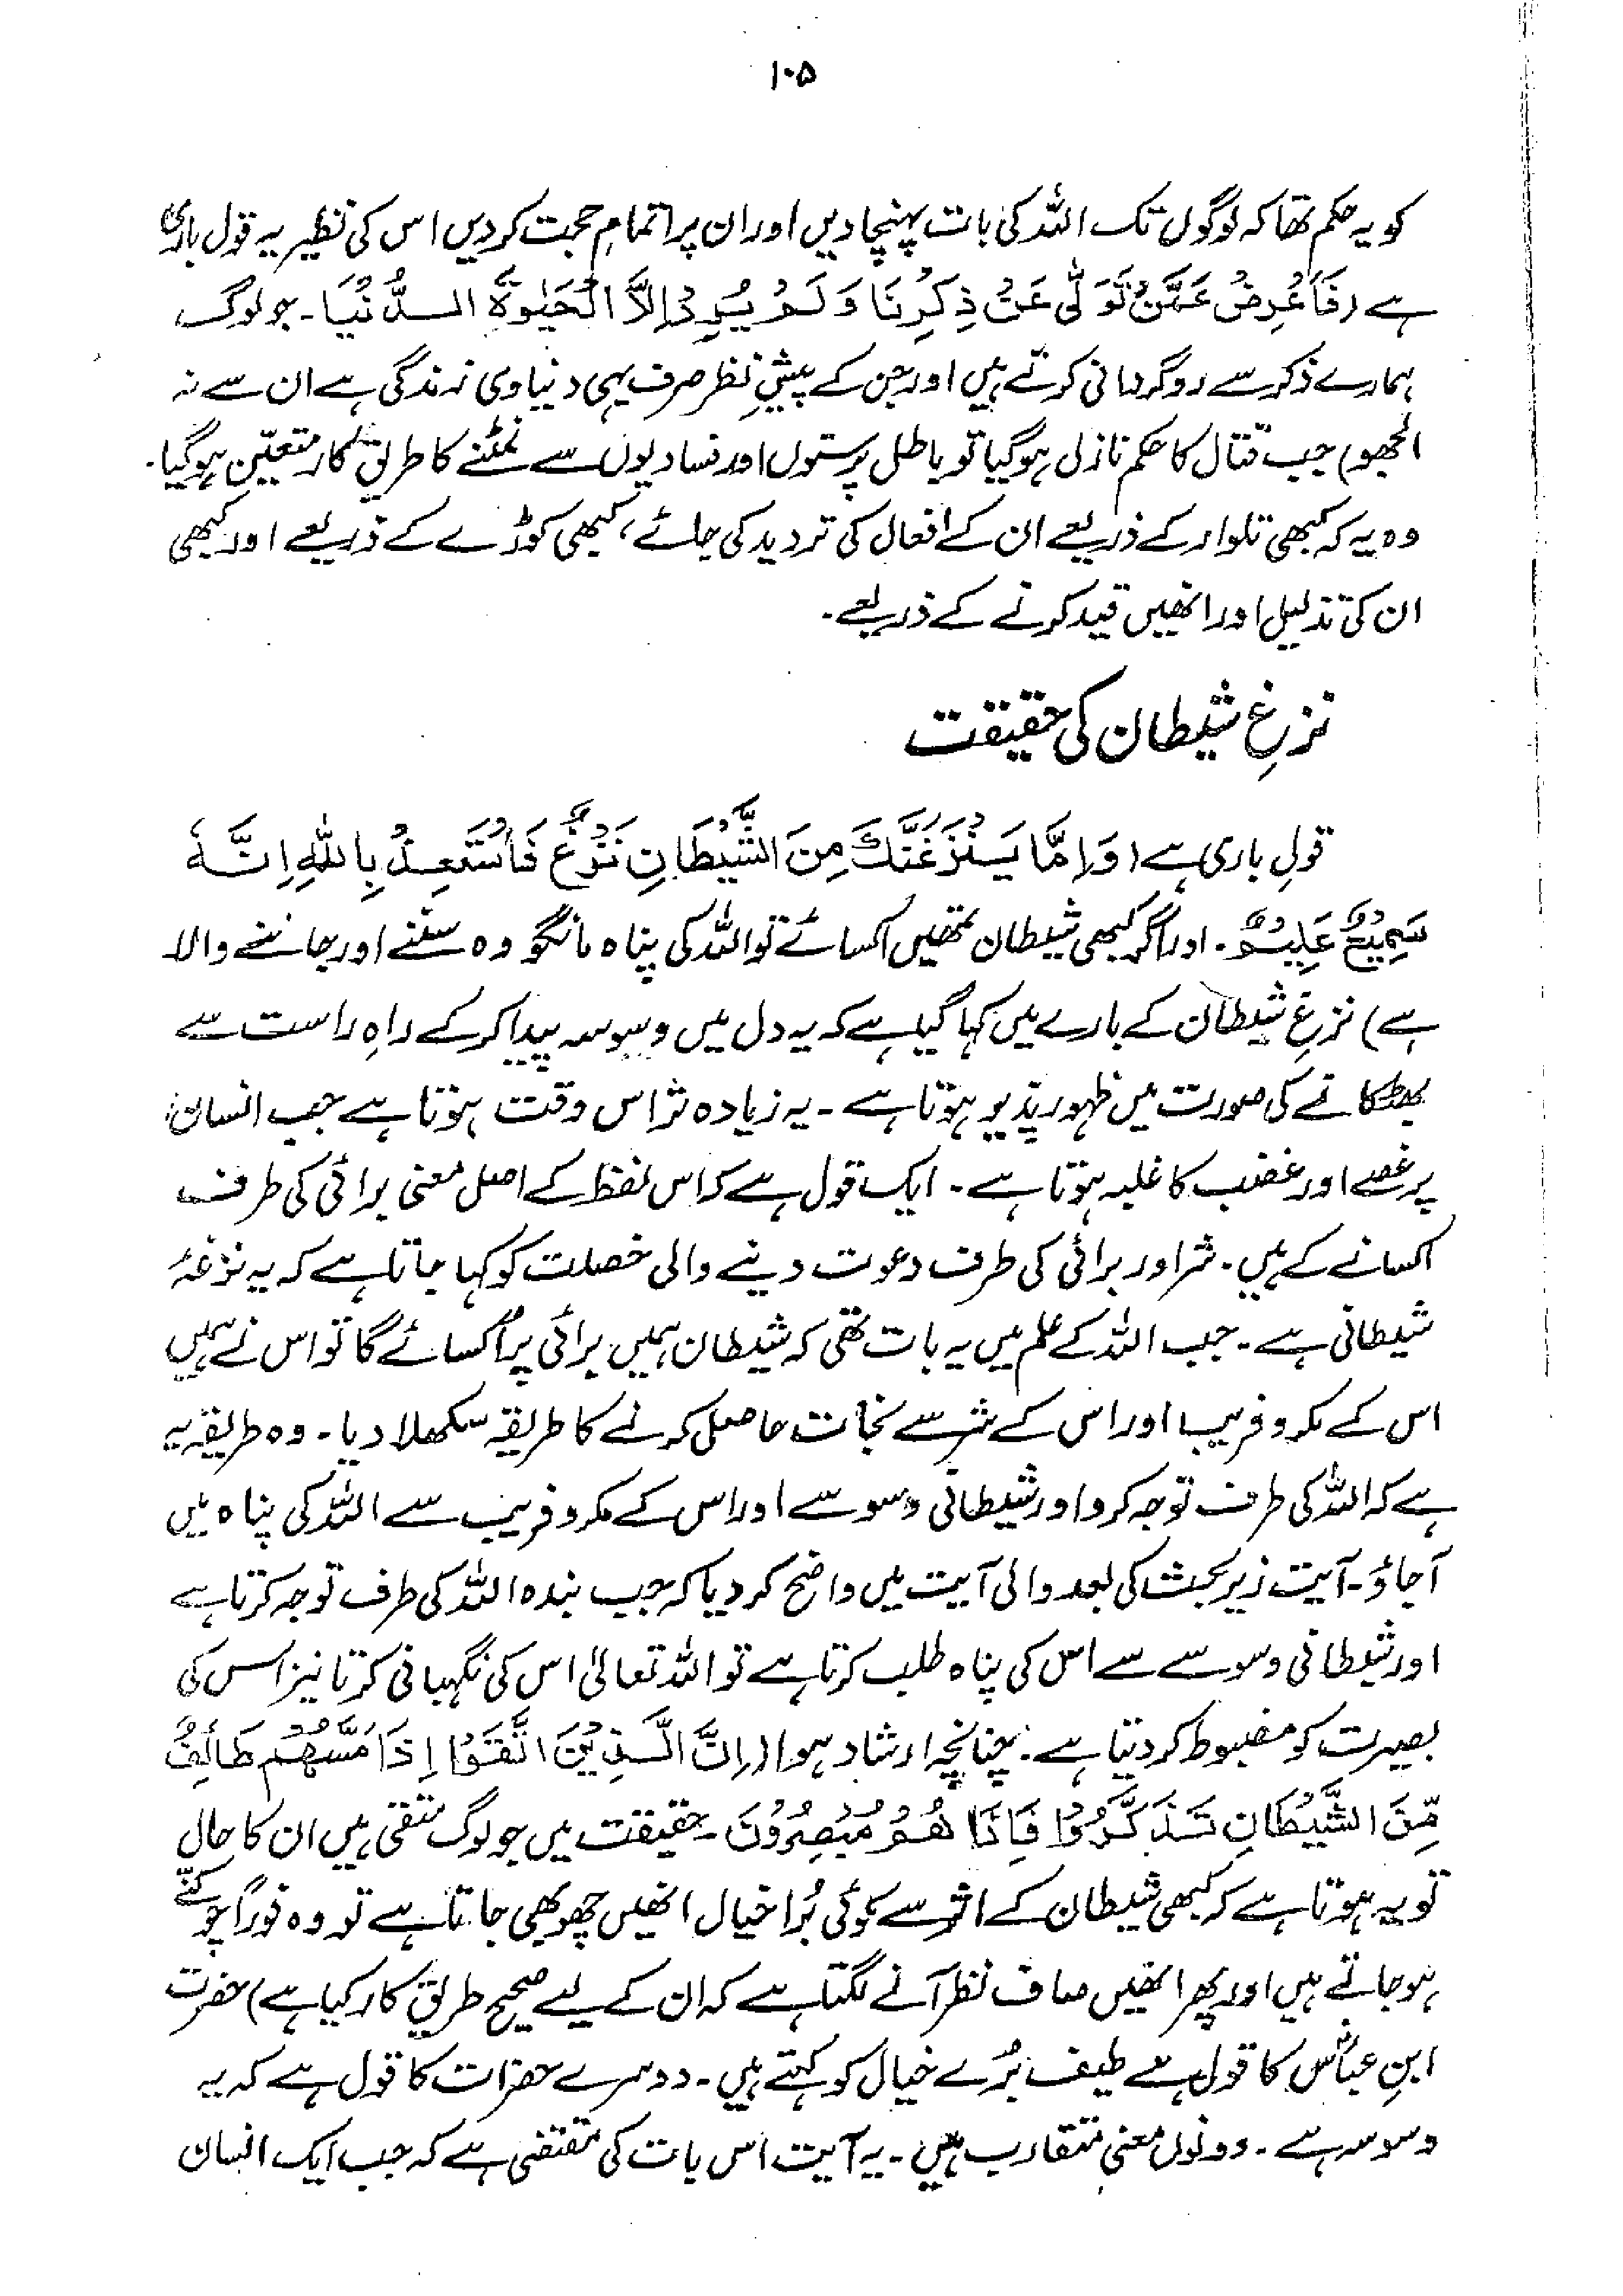 ۱۰۵
کو یہ حکم تھا کہ لوگوں تک اللہ کی بات پہنچا دیں اور ان پر اتمامِ حجت کر دیں اس کی نظیر یہ قول باری
ہے (فَاَعْرِضْ عَمَّنْ تَوَلّٰی عَنْ ذِکْرِنَا وَلَمْ یُرِدْ اِلَّا الْحَیٰوۃَ الدُّنْیَا۔ جو لوگ
ہمارے ذکر سے روگردانی کرتے ہیں اور جن کے پیشِ نظر صرف یہی دنیاوی زندگی ہے ان سے نہ
الجھو) جب قتال کا حکم نازل ہوگیا تو باطل پرستوں اور فسادیوں سے نمٹنے کا طریق کار متعیّن ہوگیا۔
وہ یہ کہ کبھی تلوار کے ذریعے ان کے افعال کی تردید کی جائے، کبھی کوڑے کے ذریعے اور کبھی
ان کی تذلیل اور انھیں قید کرنے کے ذریعے۔
نزغِ شیطان کی حقیقت
قولِ باری ہے (وَاِمَّا یَنْزَغَنَّکَ مِنَ الشَّیْطَانِ نَزْغٌ فَاسْتَعِذْ بِاللّٰہِ اِنَّہٗ
سَمِیْعٌ عَلِیْمٌ۔ اور اگر کبھی شیطان تمھیں اکسائے تو اللہ کی پناہ مانگو وہ سننے اور جاننے والا
ہے) نزغِ شیطان کے بارے میں کہا گیا ہے کہ یہ دل میں وسوسہ پیدا کرکے راہِ راست سے
بھٹکانے کی صورت میں ظہور پذیر ہوتا ہے۔ یہ زیادہ تر اس وقت ہوتا ہے جب انسان
پر غصے اور غضب کا غلبہ ہوتا ہے۔ ایک قول ہے کہ اس لفظ کے اصل معنی برائی کی طرف
اکسانے کے ہیں۔ شر اور برائی کی طرف دعوت دینے والی خصلت کو کہا جاتا ہے کہ یہ نزغۂ
شیطانی ہے۔ جب اللہ کے علم میں یہ بات تھی کہ شیطان ہمیں برائی پر اُکسائے گا تو اس نے ہمیں
اس کے مکر و فریب اور اس کے شر سے نجات حاصل کرنے کا طریقہ سکھلا دیا۔ وہ طریقہ یہ
ہے کہ اللہ کی طرف توجہ کرو اور شیطانی وسوسے اور اس کے مکر و فریب سے اللہ کی پناہ میں
آجاؤ۔ آیت زیر بحث کی بعد والی آیت میں واضح کر دیا کہ جب بندہ اللہ کی طرف توجہ کرتا ہے
اور شیطانی وسوسے سے اس کی پناہ طلب کرتا ہے تو اللہ تعالیٰ اس کی نگہبانی کرتا نیز اس کی
بصیرت کو مضبوط کر دیتا ہے۔ چنانچہ ارشاد ہوا (اِنَّ الَّذِیْنَ اتَّقَوْا اِذَا مَسَّھُمْ طَائِفٌ
مِّنَ الشَّیْطَانِ تَذَکَّرُوْا فَاِذَا ھُمْ مُّبْصِرُوْنَ۔ حقیقت میں جو لوگ متقی ہیں ان کا حال
تو یہ ہوتا ہے کہ کبھی شیطان کے اثر سے کوئی بُرا خیال انھیں چھو بھی جاتا ہے تو وہ فوراً چوکنّے
ہو جاتے ہیں اور پھر انھیں صاف نظر آنے لگتا ہے کہ ان کے لیے صحیح طریق کار کیا ہے) حضرت
ابنِ عباسؓ کا قول ہے طیف بُرے خیال کو کہتے ہیں۔ دوسرے حضرات کا قول ہے کہ یہ
وسوسہ ہے۔ دونوں معنی متقارب ہیں۔ یہ آیت اس بات کی مقتضی ہے کہ جب ایک انسان